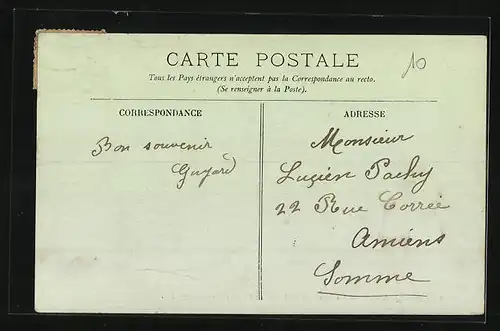 CARTE POSTALE
10
Tous les Pays étrangers n'acceptent pas la Correspondance au recto.
(Se renseigner à la Poste).
CORRESPONDANCE
Bon souvenir
Guyard
ADRESSE
Monsieur
Lucien Pachy
22 Rue Corrée
Amiens
Somme